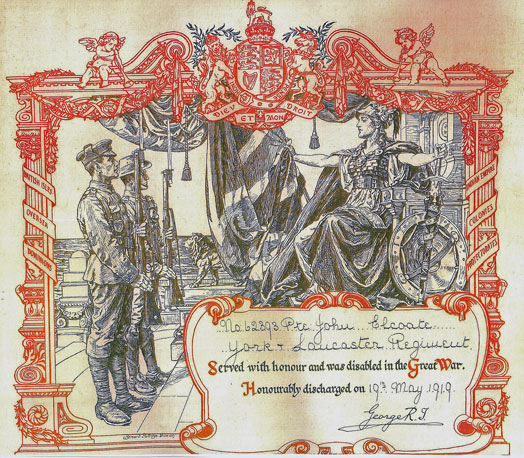 DIEU ET MON DROIT
BRITISH ISLES
OVERSEA
DOMINIONS
INDIAN EMPIRE
COLONIES
PROTECTORATES
No 62393 Pte John Elcoate
York & Lancaster Regiment
Served with honour and was disabled in the Great War.
Honourably discharged on 19th May 1919.
George R.I.